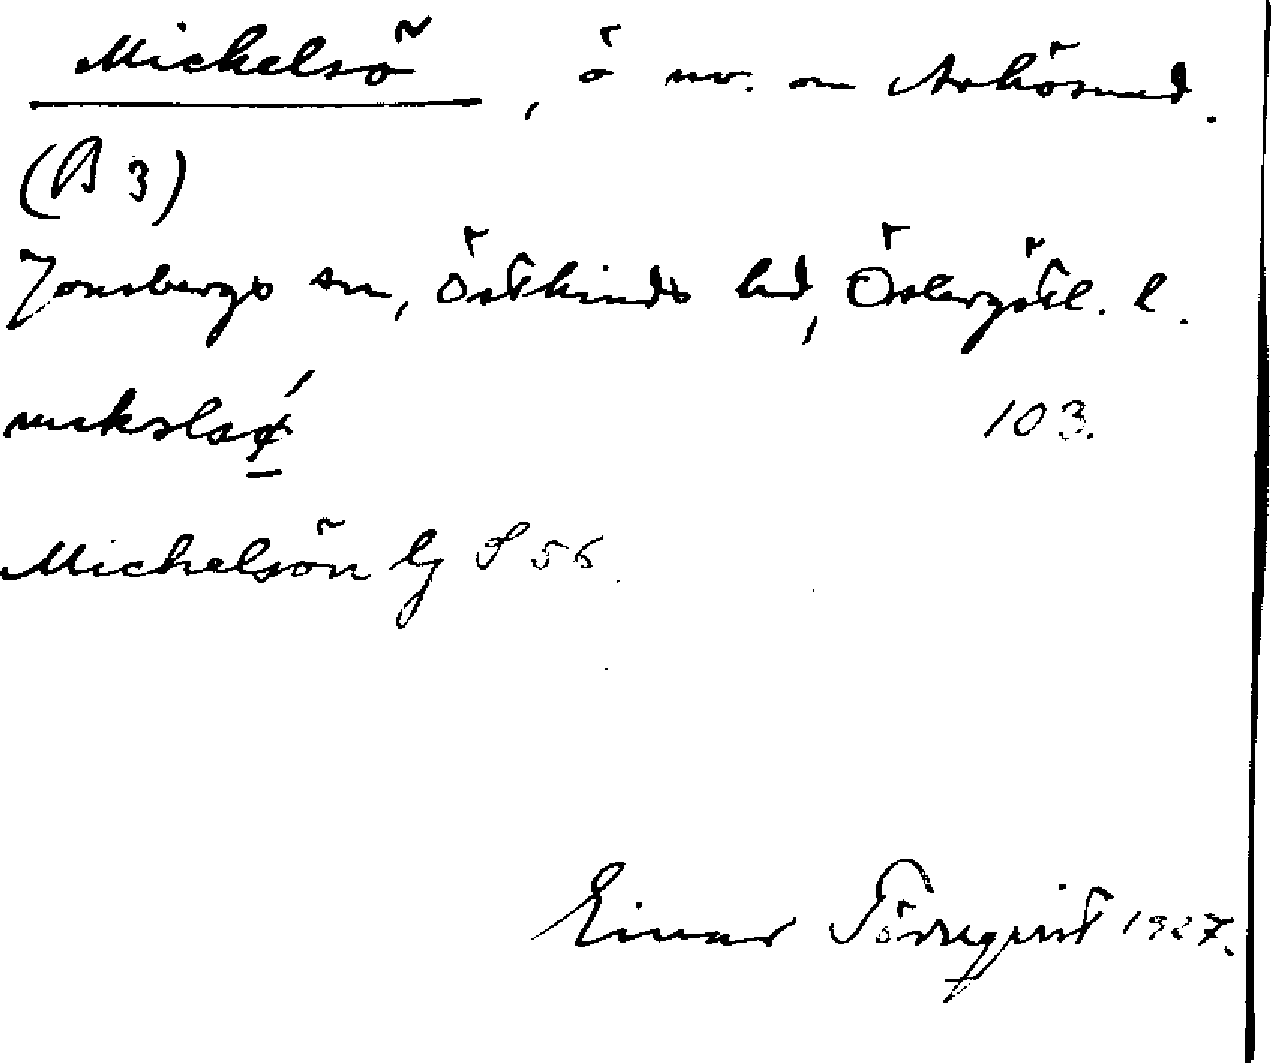 Mickelsö, ö nv. om Arkösund.
(B 3)
Jonsbergs sn, Östkinds hd, Östergötl. l.
103.
Michelsön lj S 56.
Einar Törnqvist 1927.